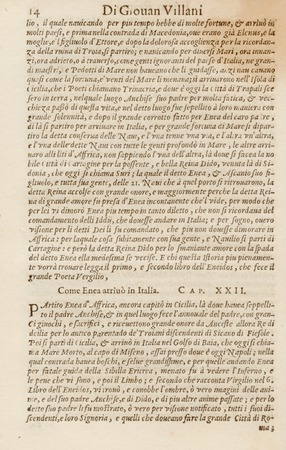 14 Di Giouan Villani
lio, il quale nauicando per piu tempo hebbe di molte fortune, & arriuò in
molti paesi, e prima nella contrada di Macedonia, oue erano già Elenus, e la
moglie, e i figliuoli d'Ettore, e dopo la dolorosa accoglienza per la ricordan-
za della ruina di Troia, si partiro; e nauicando per diuersi Mari, hora innan-
zi, hora adrieto, o a trauerso, come genti ignoranti del paese d'Italia, ne gran-
di maestri, e Pedotti di Mare non haueano che li guidasse, anzi nauicauano
quasi come la fortuna, e venti del Mare li menaua, si arriuarono nell'isola di
cicilia, che i Poeti chiamano Trinacria, e doue è oggi la città di Trapali sce-
sero in terra, nelquale luogo Anchise suo padre per molta fatica, & vec-
chiezza passò di questa vita, e nel detto luogo fue sepellito à loro maniera con
grande solennità, e dopo il grande corrotto fatto per Enea del caro padre,
di là si partiro per arriuare in Italia, e per grande fortuna di Mare si dipar-
tiro la detta conserua delle Naui, e l'vna tenne vna via, e l'altra vn'altra,
e l'vna delle dette Naui con tutte le genti profondò in Mare, le altre arriua-
ro alli liti d'Affrica, non sappiendo l'vna dell'altra, là doue si facea la no-
bile città di Cartagine per la possente, e bella Reina Dido, venuta là di Si-
donia, che oggi si chiama Suri; la quale il detto Enea, & Ascanio suo fi-
gliuolo, e tutta sua gente, delle 21. Naui che à quel porto si ritrouarono, la
detta Reina accolse con grande onore, e maggiormente perche la detta Rei-
na di grande amore fu presa d'Enea incontanente che l'vide, per modo che
per lei vi dimorò Enea piu tempo in tanto diletto, che non si ricordaua del
comandamento delli Iddij, che douesse andare in Italia; e per sogno, ouero
visione per li detti Dei li fu comandato, che piu non douesse dimorare in
Affrica: per laquale cosa subitamente con sua gente, e Nauilio si partì di
Cartagine: e però la detta Reina Dido per lo smisurato amore con la spada
del detto Enea ella medesima se vccise. E chi questa istoria piu pienamen-
te vorrà trouare legga il primo, e secondo libro dell'Eneidos, che fece il
grande Poeta Vergilio.
Come Enea arriuò in Italia. CAP. XXII.
PArtito Enea d'Affrica, ancora capitò in Cicilia, là doue hauea seppelli-
to il padre Anchise, & in quel luogo fece l'annouale del padre, con gran-
di giuochi, e sacrifici, e riceuettono grande onore da Anceste allora Re di
Cicilia per lo antico parentado de' Troiani discendenti di Sicano di Fiesole.
Poi si partì di Cicilia, & arriuò in Italia nel Golfo di Baia, che oggi si chia-
ma Mare Morto, al capo di Miseno, assai presso doue è oggi Napoli; nella
qual contrada hauea boschi, e selue grandissime, e per quelle andando Enea
per fatale guida della Sibilla Ericrea, menato fu à vedere l'Inferno, e
le pene che vi sono, e poi il Limbo; e secondo che racconta Virgilio nel 6.
Libro dell'Eneidos, iui trouò, e conobbe l'ombre, ò vero imagini delle ani-
me, e del suo padre Anchise, e di Dido, e di piu altre anime passate; e per lo
detto suo padre li fu mostrato, ò vero per visione notificato, tutti i suoi di-
scendenti, e loro Signoria, e quelli che doueano fare la grande Città di Ro-
ma;